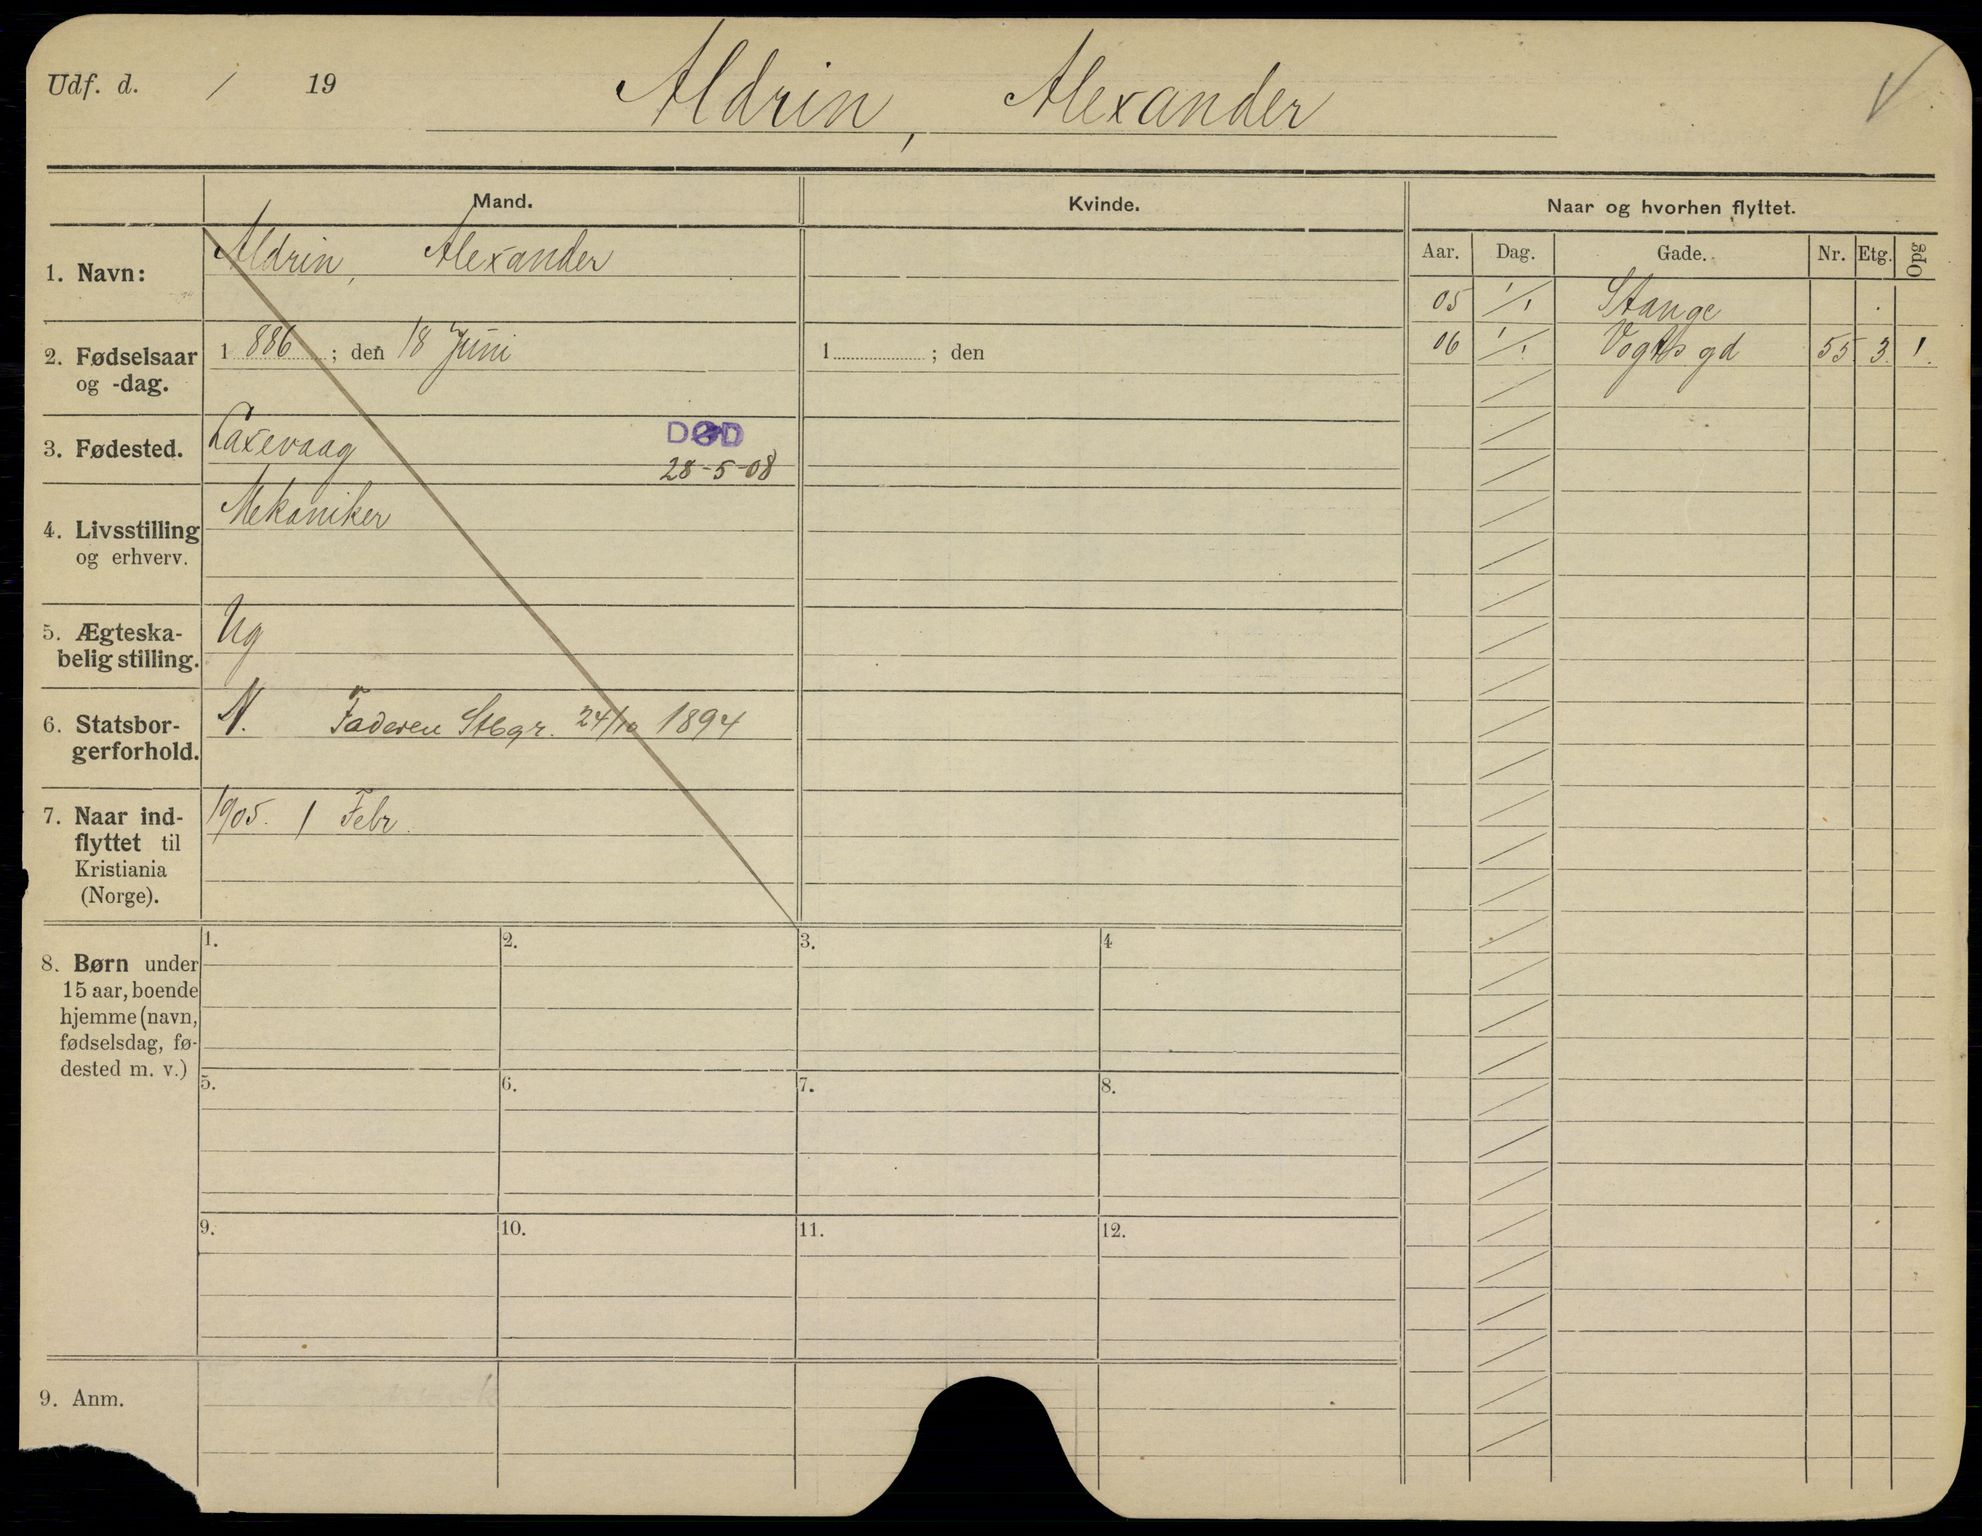 Udf. d. / 19
Aldrin, Alexander
Mand.
Kvinde.
Naar og hvorhen flyttet.
Aar. Dag. Gade. Nr. Etg. Opg
1. Navn: Aldrin, Alexander
05 1/1 Stange
2. Fødselsaar og -dag.
1886; den 18 Juni
1 ; den
06 1/1 Vogts gd 55 3 1.
3. Fødested. Laxevaag
DØD
28-5-08
4. Livsstilling og erhverv.
Mekaniker
5. Ægteska-
belig stilling.
Ug
6. Statsbor-
gerforhold.
N. Faderen Stbgr. 24/10 1894
7. Naar ind-
flyttet til
Kristiania
(Norge).
1905. 1 Febr.
8. Børn under
15 aar, boende
hjemme (navn,
fødselsdag, fø-
dested m. v.)
1. 2. 3. 4
5. 6. 7. 8.
9. 10. 11. 12.
9. Anm.